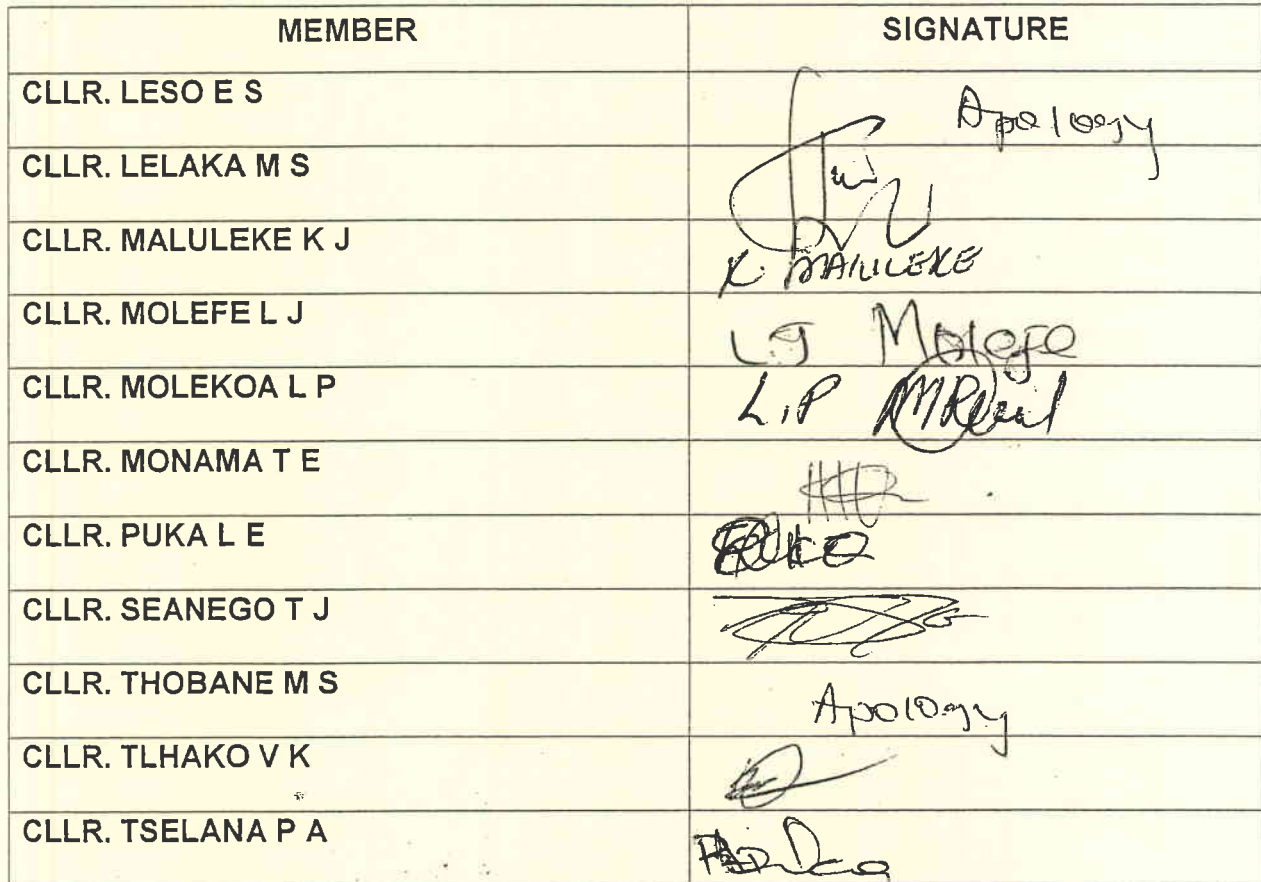 MEMBER SIGNATURE
CLLR. LESO E S Apology
CLLR. LELAKA M S
CLLR. MALULEKE K J K. MALULEKE
CLLR. MOLEFE L J LJ Molefe
CLLR. MOLEKOA L P L.P
CLLR. MONAMA T E
CLLR. PUKA L E
CLLR. SEANEGO T J
CLLR. THOBANE M S Apology
CLLR. TLHAKO V K
CLLR. TSELANA P A